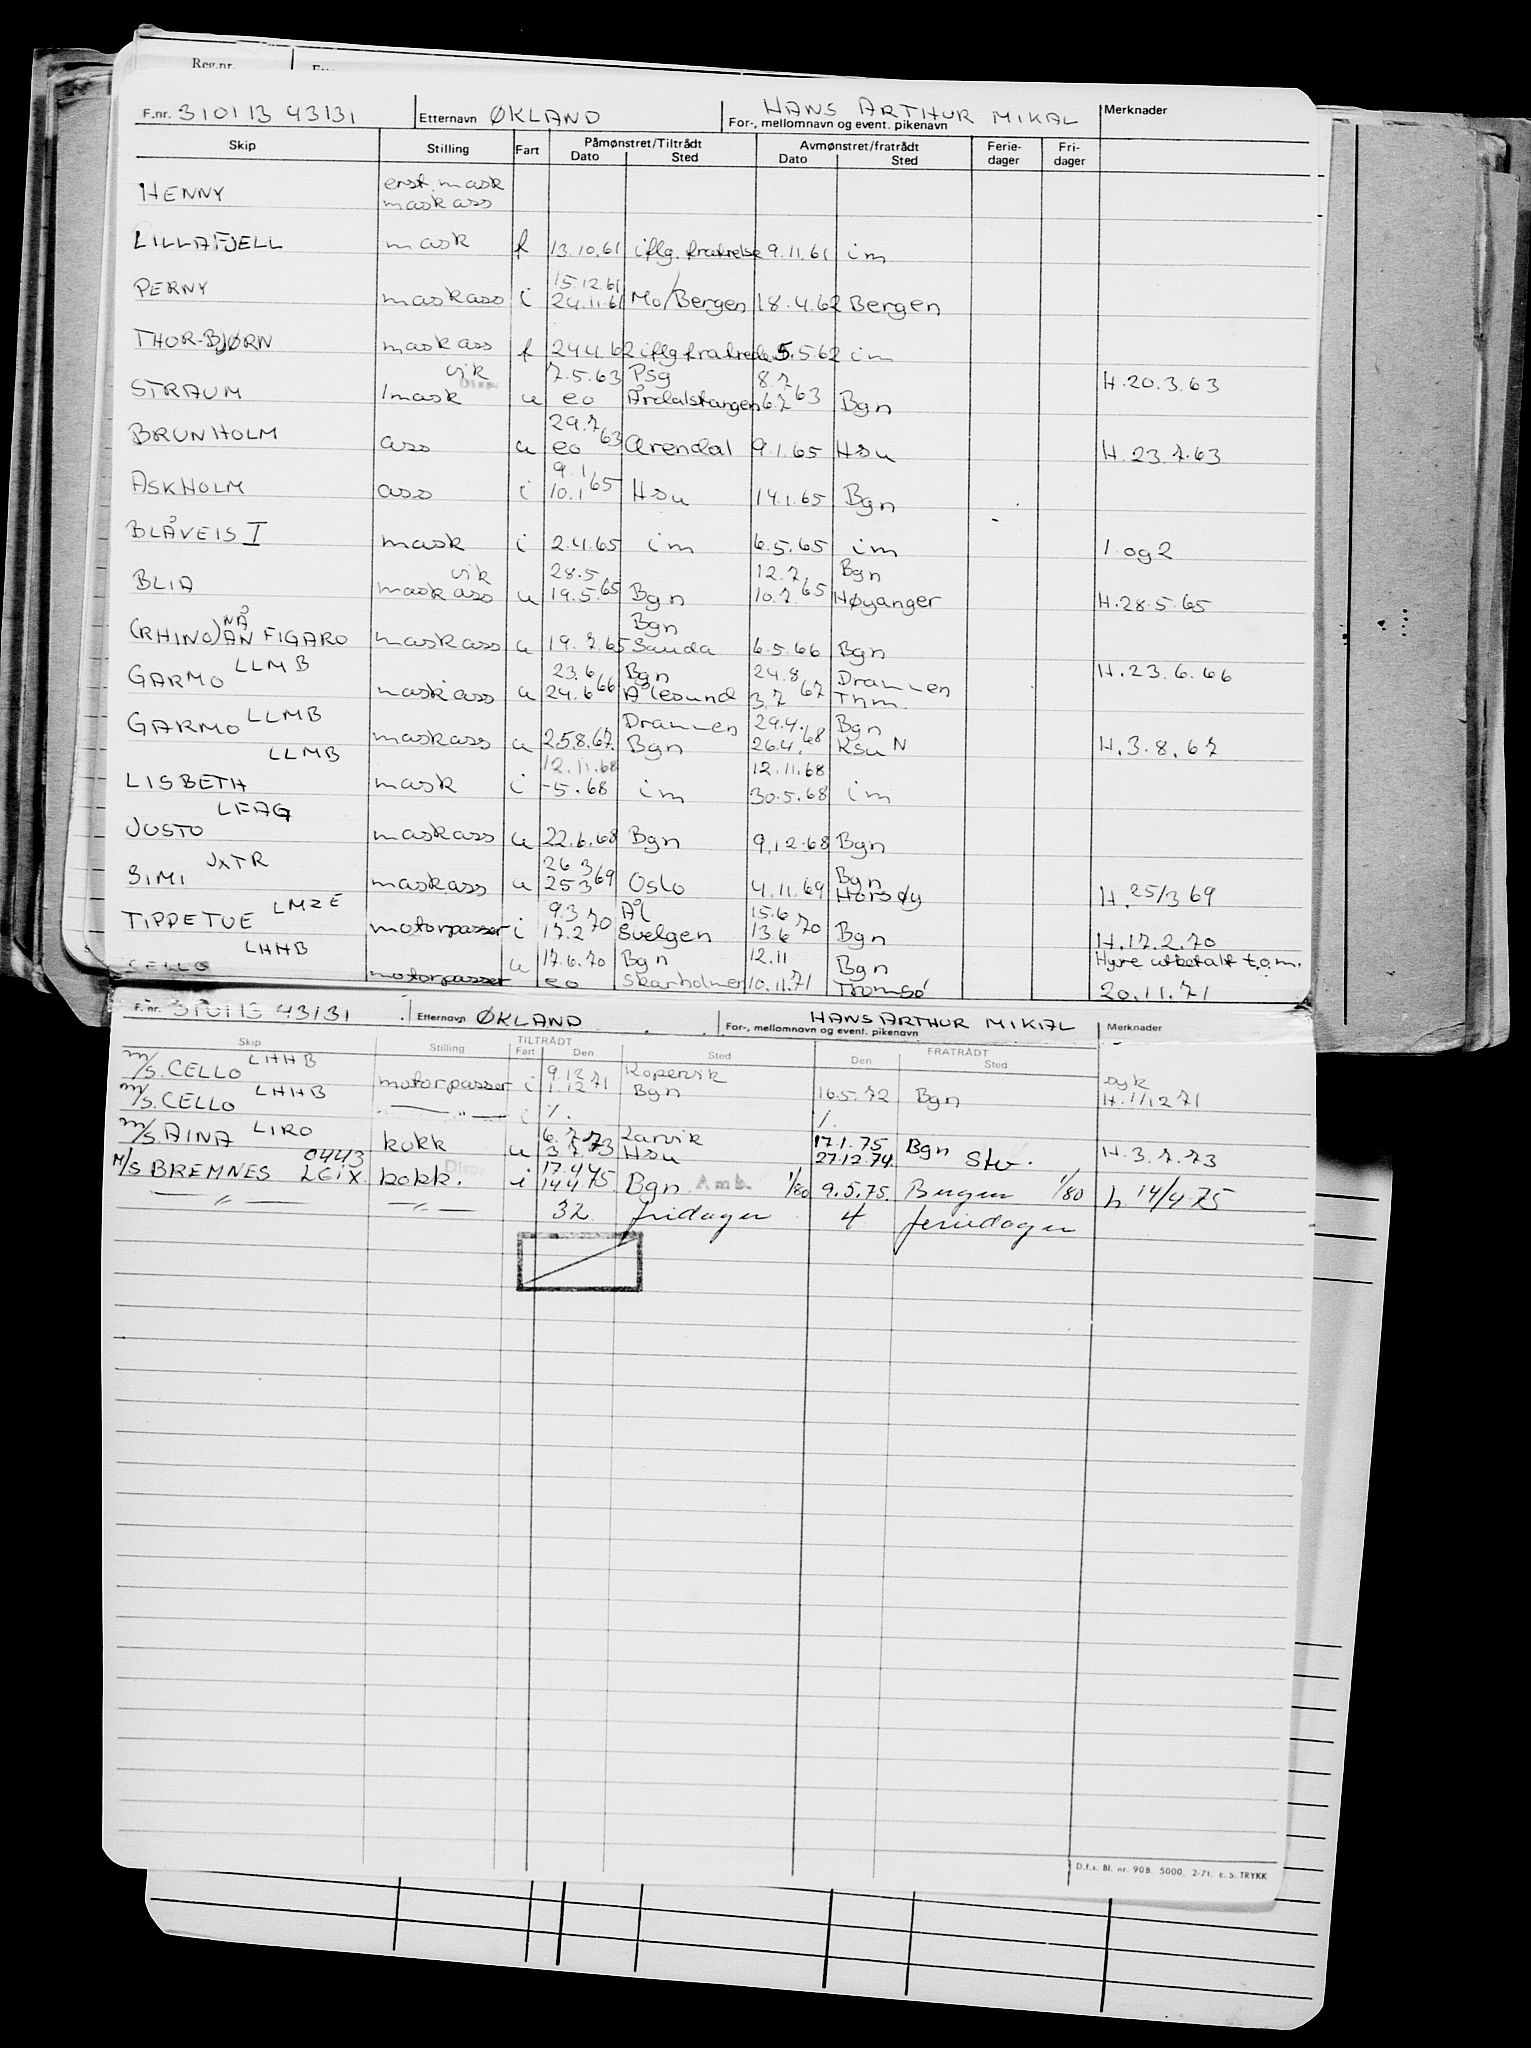 Reg.nr.
F.nr. 310113 43131 Etternavn ØKLAND HANS ARTHUR MIKAL For-, mellomnavn og event. pikenavn Merknader
Skip Stilling Fart Påmønstret/Tiltrådt Dato Sted Avmønstret/fratrådt Dato Sted Ferie-dager Fri-dager
HENNY erst. mask mask ass
LILLAFJELL mask f 13.10.61 iflg. fratrelse 9.11.61 im
15.12.61
PERNY mask ass i 24.11.61 Mo/Bergen 18.4.62 Bergen
THOR-BJØRN mask ass f 24.4.62 iflg fratrede 5.5.62 im
vik 7.5.63 Psg 8.7 H.20.3.63
STRAUM 1mask u eo Årdalstangen 6.7 63 Bgn
29.7
BRUNHOLM ass u eo 63 Arendal 9.1.65 Hsu H.23.7.63
9.1
ASKHOLM ass i 10.1 65 Hsu 14.1.65 Bgn
BLÅVEIS I mask i 2.4.65 im 6.5.65 im 1 og 2
vik 28.5 12.7 Bgn
BLIA mask ass u 19.5.65 Bgn 10.7.65 Høyanger H.28.5.65
NÅ Bgn
(RHINO) AN FIGARO mask ass u 19.7.65 Sauda 6.5.66 Bgn
LLMB 23.6 Bgn 24.8 Drammen H.23.6.66
GARMO mask ass u 24.6 66 Ålesund 3.7 67 Thm.
LLMB Drammen 29.4. Bgn
GARMO mask ass u 25.8.67. Bgn 26.4. 68 Ksu N H.3.8.67
LLMB 12.11.68 12.11.68
LISBETH mask i -5.68 im 30.5.68 im
LFAG
JUSTO mask ass u 22.6.68 Bgn 9.12.68 Bgn
JXTR 26 3 Bgn
SIMI mask ass u 25 3 69 Oslo 4.11.69 Horsøy H.25/3 69
LMZE 9.3 Ål 15.6
TIPPETUE motorpasser i 17.2 70 Svelgen 13 6 70 Bgn H.17.2.70
LHHB 17.6.70 Bgn 12.11 Bgn Hyre utbetalt t.o.m.
CELLO motorpasser u eo Skarholmen 10.11.71 Tromsø 20.11.71
F. nr. 310113 43131 Etternavn ØKLAND HANS ARTHUR MIKAL For-, mellomnavn og event. pikenavn Merknader
Skip Stilling TILTRÅDT Fart Den Sted FRATRÅDT Den Sted
LHHB 9.12 Kopervik syk
M/S. CELLO motorpasser i 1.12 71 Bgn 16.5.72 Bgn H.1/12 71
M/S. CELLO LHHB —"— i %. %.
LIRO 6.7.73 Larvik 17.1.75 Bgn
M/S. AINA kokk u 3.7.73 Hsu 27.12.74. Stv. H.3.7.73
0443 17.4 75
M/S BREMNES LGiX. kokk. i 14 4 75. Bgn Amb. 1/80 9.5.75. Bergen 1/80 h 14/4-75
—"— —"— 32 fridager 4 feriedager
D.f.s. Bl. nr. 90B. 5000. 2-71. E.S. TRYKK